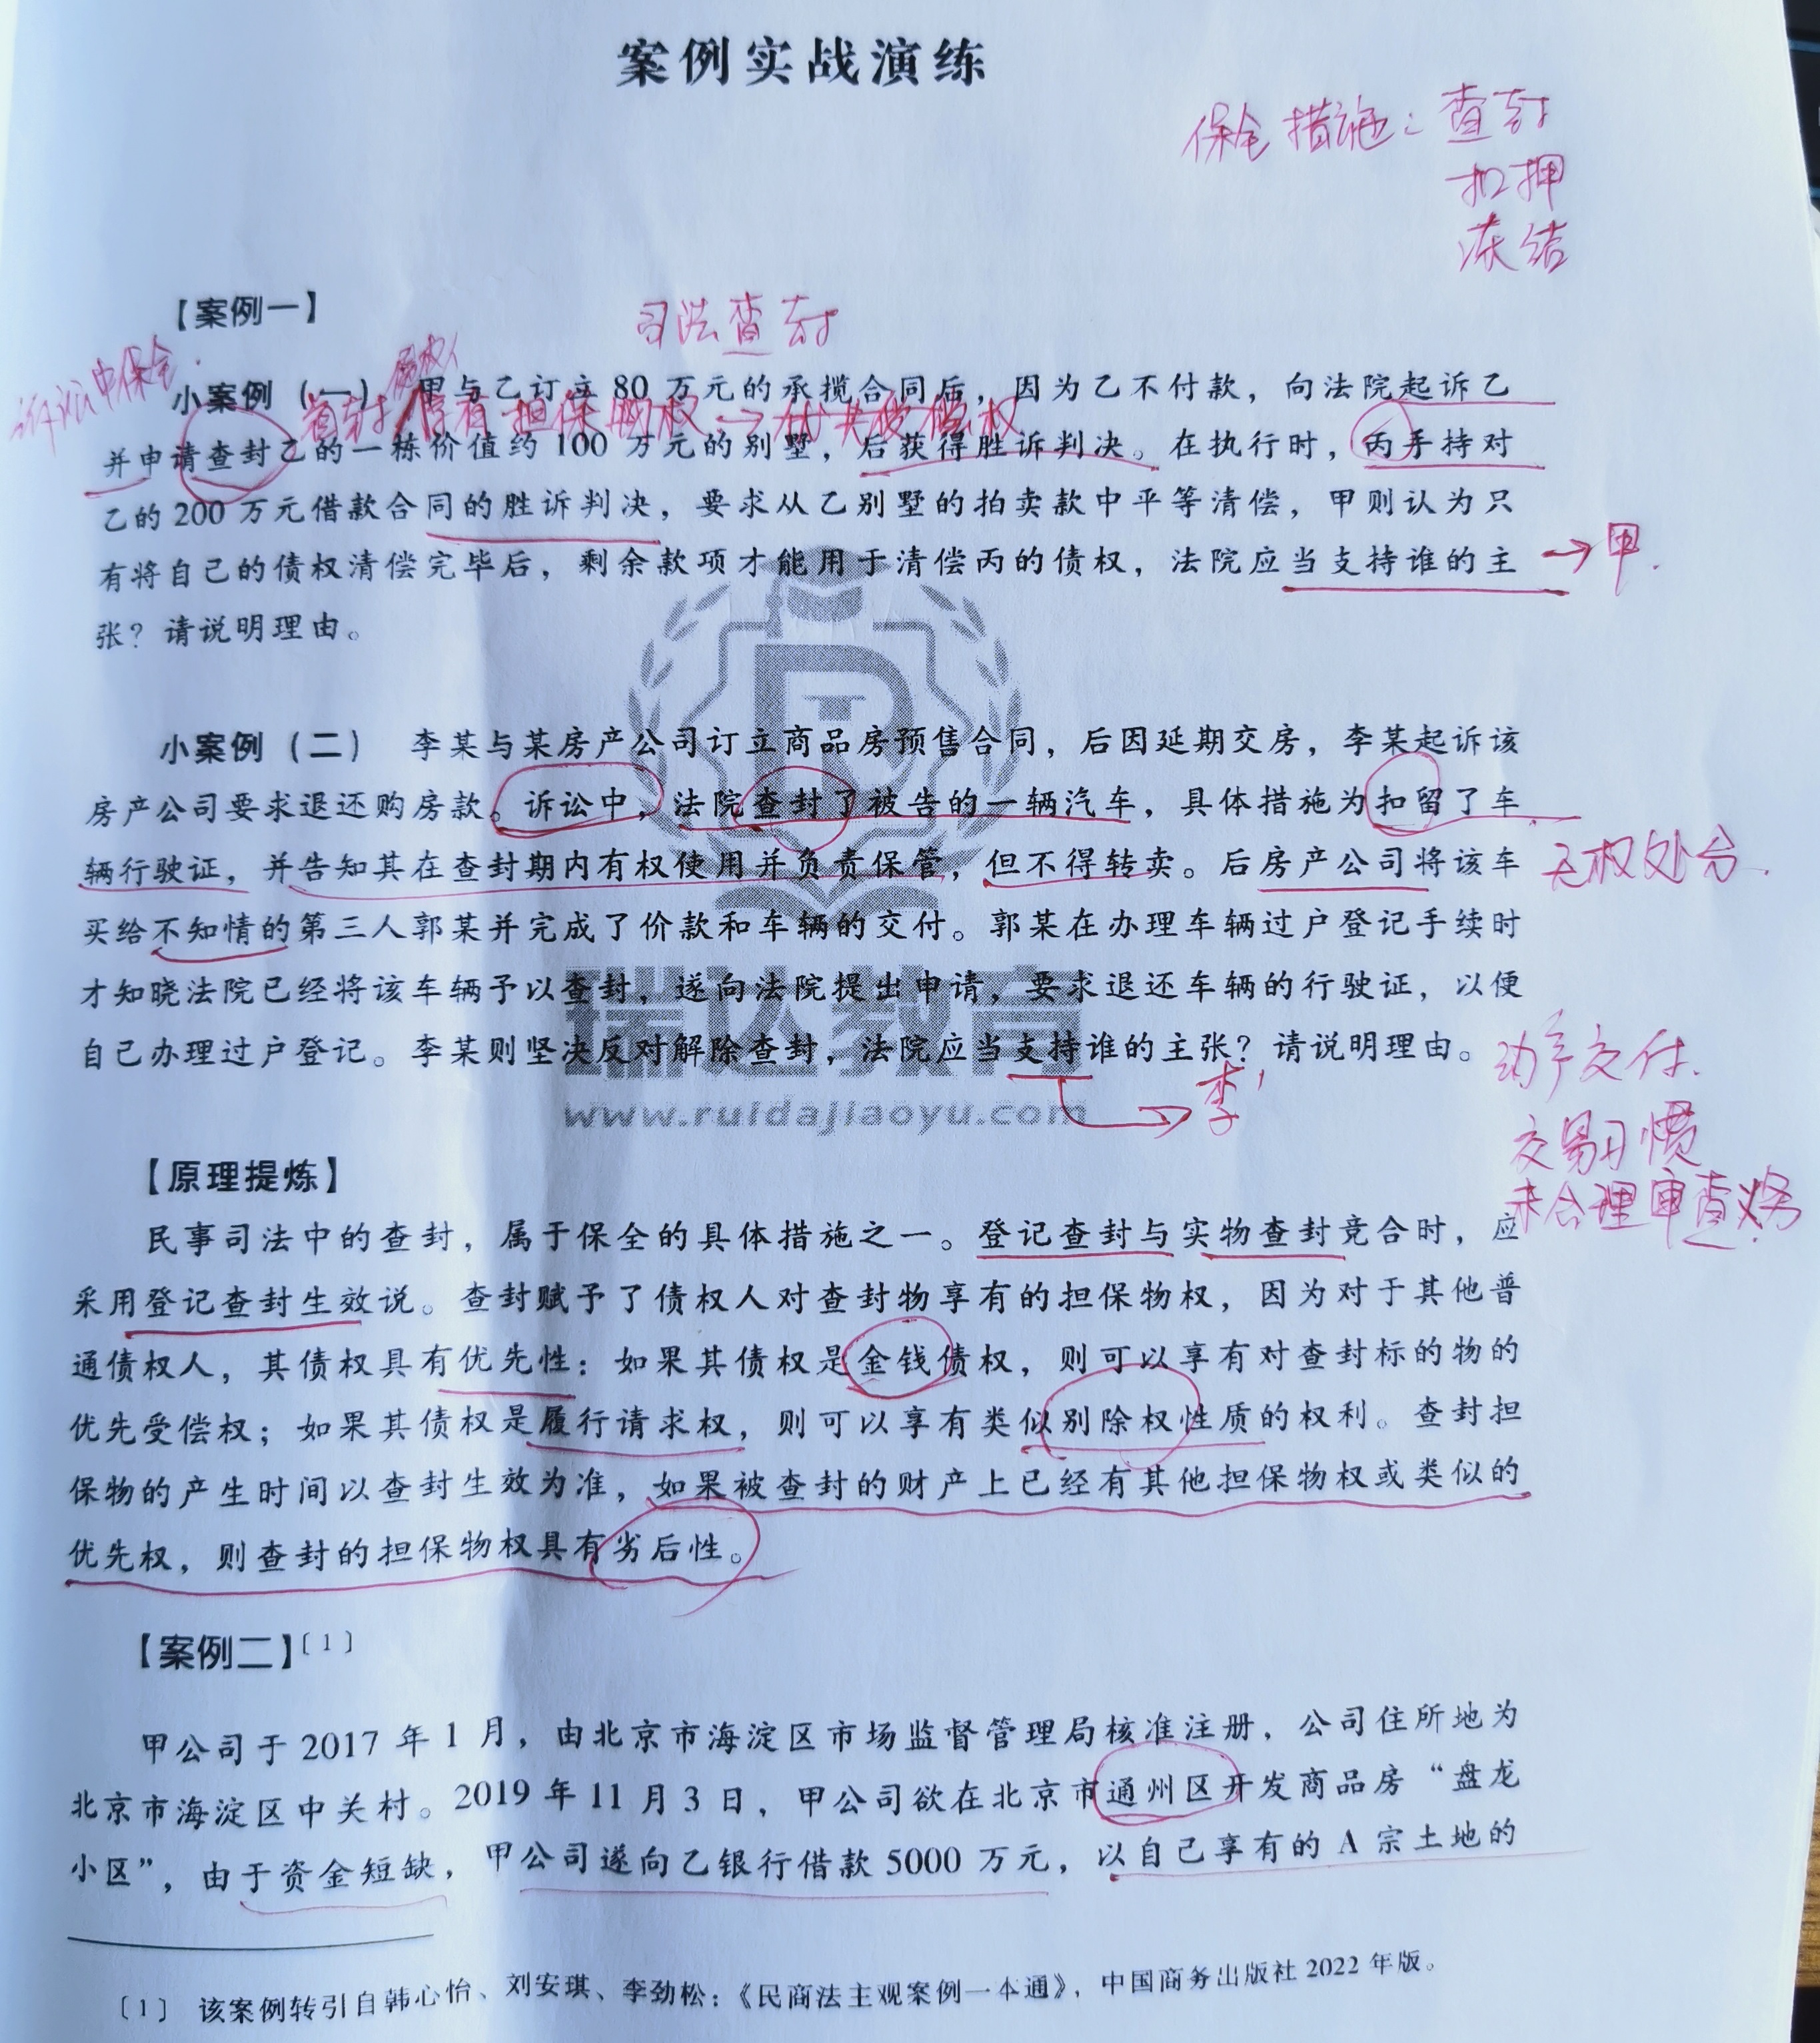 案例实战演练
保全措施：查封
扣押
冻结
【案例一】
司法查封
诉讼中保全.
债权人
小案例（一） 甲与乙订立 80 万元的承揽合同后，因为乙不付款，向法院起诉乙
查封 享有担保物权→优先受偿权
并申请查封乙的一栋价值约 100 万元的别墅，后获得胜诉判决。在执行时，丙手持对
乙的 200 万元借款合同的胜诉判决，要求从乙别墅的拍卖款中平等清偿，甲则认为只
有将自己的债权清偿完毕后，剩余款项才能用于清偿丙的债权，法院应当支持谁的主 →甲.
张？请说明理由。
小案例（二） 李某与某房产公司订立商品房预售合同，后因延期交房，李某起诉该
房产公司要求退还购房款。诉讼中，法院查封了被告的一辆汽车，具体措施为扣留了车
辆行驶证，并告知其在查封期内有权使用并负责保管，但不得转卖。后房产公司将该车 无权处分.
买给不知情的第三人郭某并完成了价款和车辆的交付。郭某在办理车辆过户登记手续时
才知晓法院已经将该车辆予以查封，遂向法院提出申请，要求退还车辆的行驶证，以便
自己办理过户登记。李某则坚决反对解除查封，法院应当支持谁的主张？请说明理由。
→李
动产交付.
交易习惯
未合理审查义务
瑞达教育
www.ruidajiaoyu.com
【原理提炼】
民事司法中的查封，属于保全的具体措施之一。登记查封与实物查封竞合时，应
采用登记查封生效说。查封赋予了债权人对查封物享有的担保物权，因为对于其他普
通债权人，其债权具有优先性：如果其债权是金钱债权，则可以享有对查封标的物的
优先受偿权；如果其债权是履行请求权，则可以享有类似别除权性质的权利。查封担
保物的产生时间以查封生效为准，如果被查封的财产上已经有其他担保物权或类似的
优先权，则查封的担保物权具有劣后性。
【案例二】〔1〕
甲公司于 2017 年 1 月，由北京市海淀区市场监督管理局核准注册，公司住所地为
北京市海淀区中关村。2019 年 11 月 3 日，甲公司欲在北京市通州区开发商品房“盘龙
小区”，由于资金短缺，甲公司遂向乙银行借款 5000 万元，以自己享有的 A 宗土地的
〔1〕 该案例转引自韩心怡、刘安琪、李劲松：《民商法主观案例一本通》，中国商务出版社 2022 年版。